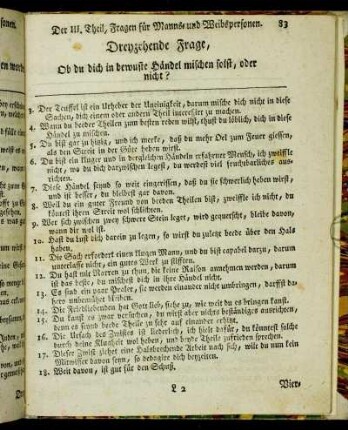 Der III. Theil, Fragen für Manns- und Weibspersonen. 83
Dreyzehende Frage,
Ob du dich in bewuste Händel mischen solst, oder
nicht?
3. Der Teuffel ist ein Urheber der Uneinigkeit, darum mische dich nicht in diese
Sachen, dich einem oder andern Theil interessirt zu machen.
4. Wann du beyder Theilen zum besten reden wilst, thust du löblich, dich in diese
Händel zu mischen.
5. Du bist gar zu hitzig, und ich merke, daß du mehr Oel zum Feuer giessen,
als den Streit in der Güte heben wirst.
6. Du bist ein kluger und in dergleichen Händeln erfahrner Mensch, ich zweiffle
nicht, wo du dich darzwischen legest, du werdest viel fruchtbarliches aus-
richten.
7. Diese Händel seynd so weit eingerissen, daß du sie schwerlich heben wirst,
und ist besser, du bleibest gar davon.
8. Weil du ein guter Freund von beeden Theilen bist, zweiffle ich nicht, du
könnest ihren Streit wol schlichten.
9. Wer sich zwischen zwey schwere Stein leget, wird gequetscht, bleibe davon,
wann dir wol ist.
10. Hast du Lust dich darein zu legen, so wirst du zuletzt beede über den Hals
haben.
11. Die Sach erfordert einen klugen Mann, und du bist capabel darzu, darum
unterlasse nicht, ein gutes Werk zu stifften.
12. Du hast mit Narren zu thun, die keine Raison annehmen werden, darum
ist das beste, du mischest dich in ihre Händel nicht.
13. Es sind ein paar Prahler, sie werden einander nicht umbringen, darffst da-
hero unbemühet bleiben.
14. Die Friedliebenden hat Gott lieb, siehe zu, wie weit du es bringen kanst.
15. Du kanst es zwar versuchen, du wirst aber nichts beständiges ausrichten,
denn es seynd beede Theile zu sehr auf einander erhitzt.
16. Die Ursach des Zwistes ist liederlich, ich hielt dafür, du könntest solche
durch deine Klugheit wol heben, und beede Theile zufrieden sprechen.
17. Dieser Zwist ziehet eine Halsbrechende Arbeit nach sich, wilt du nun kein
Mitwisser davon seyn, so bedanke dich beyzeiten.
18. Weit davon, ist gut für den Schuß.
L 2
Vier-